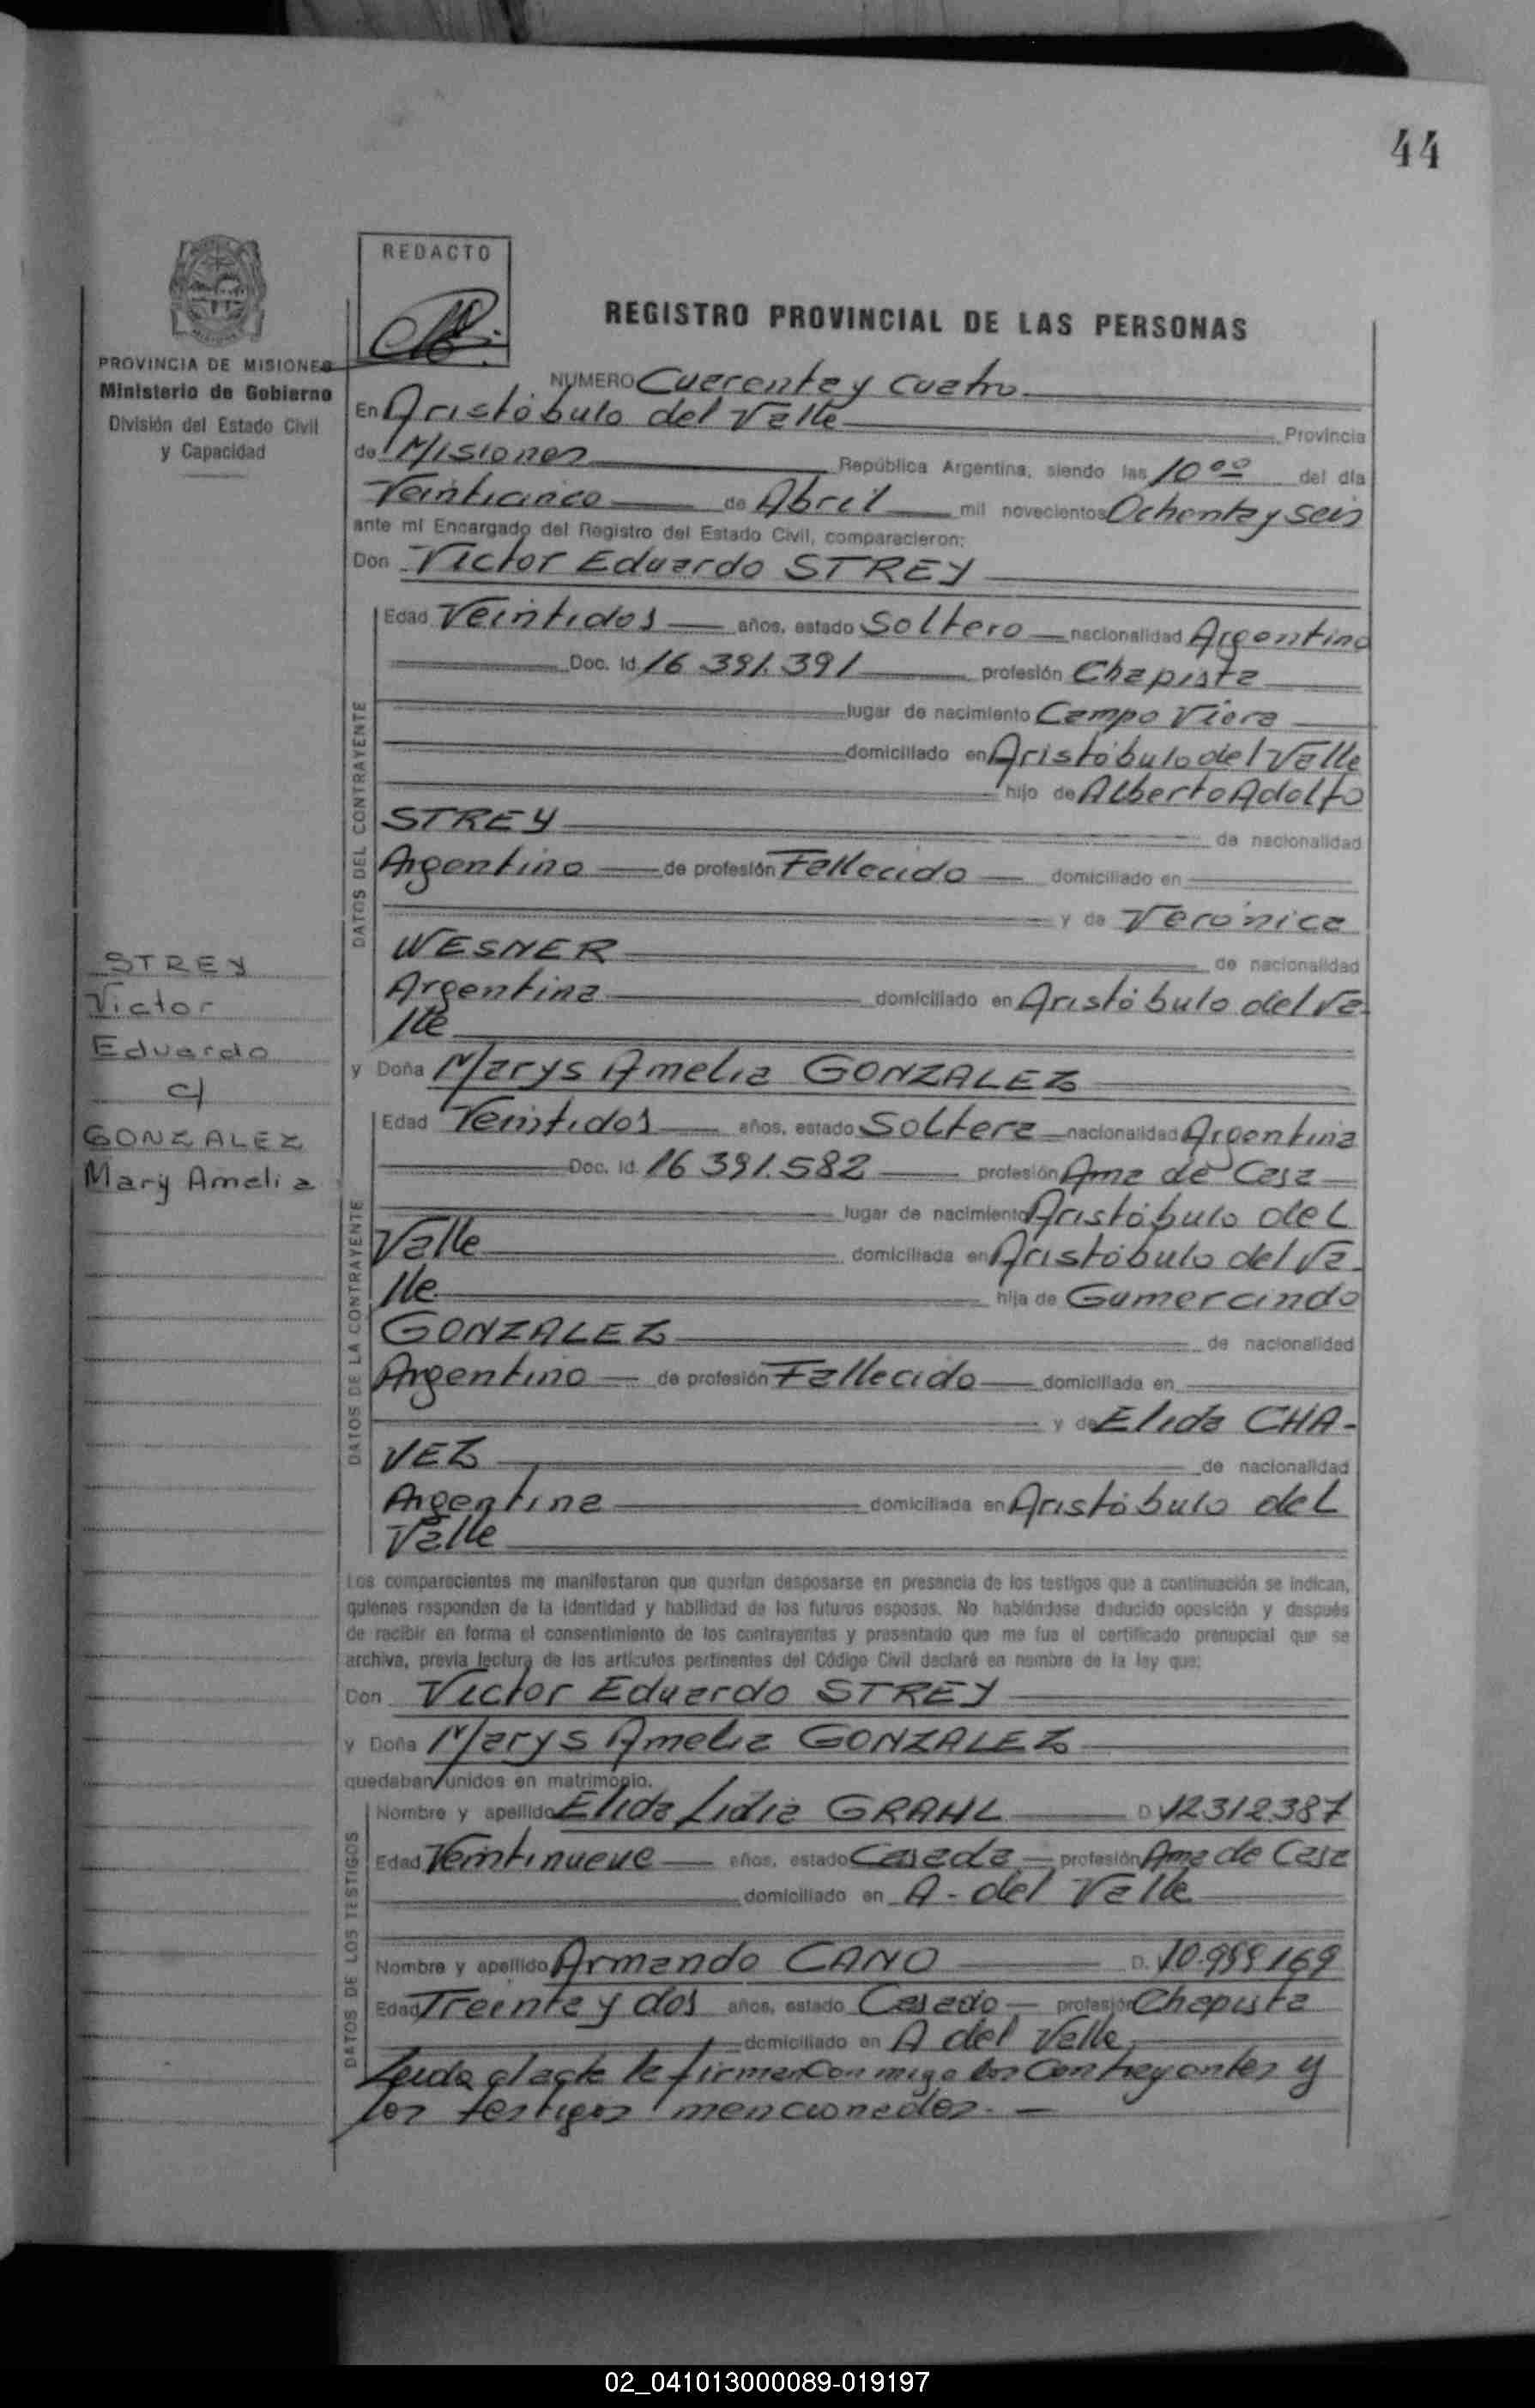 44
REDACTO
REGISTRO PROVINCIAL DE LAS PERSONAS
PROVINCIA DE MISIONES
Ministerio de Gobierno
División del Estado Civil
y Capacidad
NUMERO Cuarenta y cuatro
En Aristóbulo del Valle Provincia
de Misiones República Argentina, siendo las 10 00 del día
Veinticinco de Abril mil novecientos Ochenta y seis
ante mí Encargado del Registro del Estado Civil, comparecieron:
Don Victor Eduardo STREY
DATOS DEL CONTRAYENTE
Edad Veintidos años, estado Soltero nacionalidad Argentino
Doc. Id. 16 391.391 profesión Chapista
lugar de nacimiento Campo Viera
domiciliado en Aristóbulo del Valle
hijo de Alberto Adolfo
STREY de nacionalidad
Argentino de profesión Fallecido domiciliado en
y de Verónica
WESNER de nacionalidad
Argentina domiciliado en Aristóbulo del Va-
lle
STREY
Victor
Eduardo
c/
GONZALEZ
Mary Amelia
y Doña Marys Amelia GONZALEZ
DATOS DE LA CONTRAYENTE
Edad Veintidos años, estado Soltera nacionalidad Argentina
Doc. Id. 16 391.582 profesión Ama de Casa
lugar de nacimiento Aristóbulo del
Valle domiciliada en Aristóbulo del Va-
lle hija de Gumercindo
GONZALEZ de nacionalidad
Argentino de profesión Fallecido domiciliada en
y de Elida CHA-
VEZ de nacionalidad
Argentina domiciliada en Aristóbulo del
Valle
Los comparecientes me manifestaron que querían desposarse en presencia de los testigos que a continuación se indican,
quienes responden de la identidad y habilidad de los futuros esposos. No habiéndose deducido oposición y después
de recibir en forma el consentimiento de los contrayentes y presentado que me fue el certificado prenupcial que se
archiva, previa lectura de los artículos pertinentes del Código Civil declaré en nombre de la ley que:
Don Victor Eduardo STREY
y Doña Marys Amelia GONZALEZ
quedaban unidos en matrimonio.
DATOS DE LOS TESTIGOS
Nombre y apellido Elida Lidia GRAHL D. 12312387
Edad Veintinueve años, estado Casada profesión Ama de Casa
domiciliado en A - del Valle
Nombre y apellido Armando CANO D. 10.959 169
Edad Treinta y dos años, estado Casado profesión Chapista
domiciliado en A del Valle
Leída el acta la firman conmigo los contrayentes y
los testigos mencionados.
02_041013000089-019197